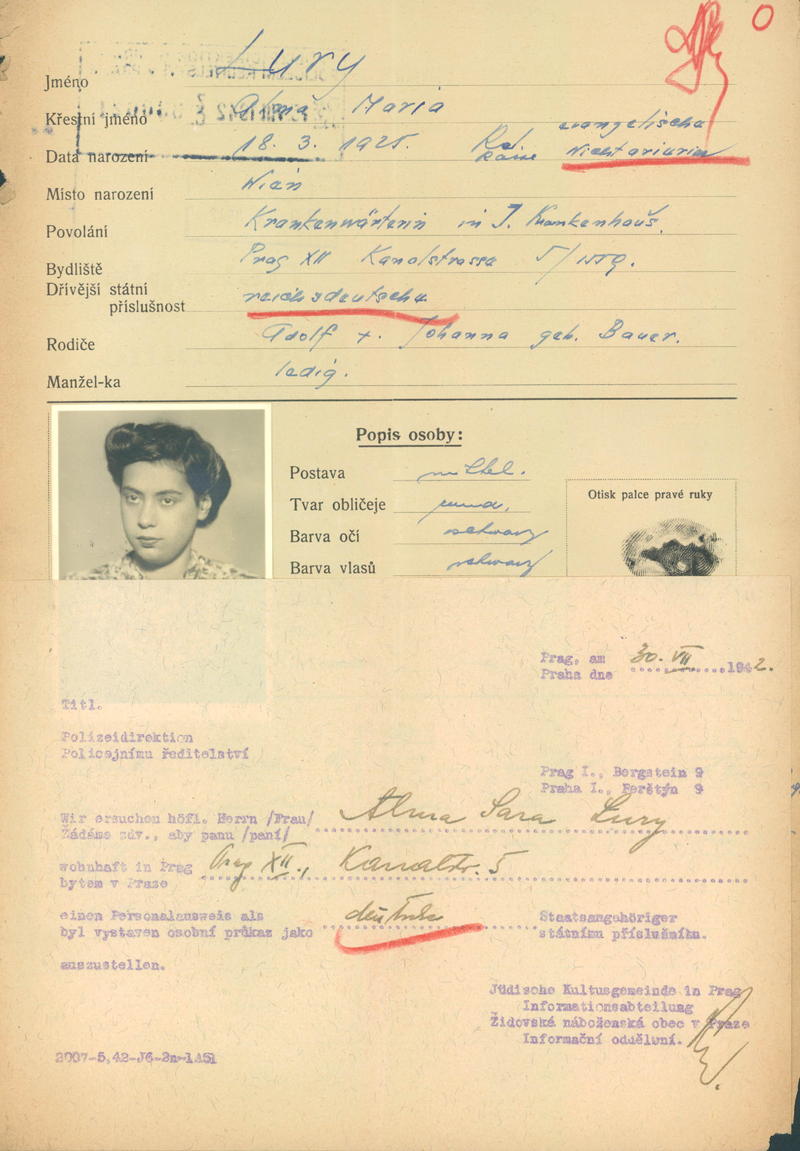 Jméno Lury
Křestní jméno Alma Maria
Data narození 18. 3. 1925. evangelische
Nichtarierin
Místo narození Wien
Povolání Krankenwärterin in J. Krankenhaus.
Bydliště Prag XII Kanalstrasse 5/
Dřívější státní
příslušnost reichsdeutsche
Rodiče Adolf + Johanna geb. Bauer.
Manžel-ka ledig.
Popis osoby:
Postava mittel.
Tvar obličeje rund.
Barva očí schwarz
Barva vlasů schwarz
Otisk palce pravé ruky
Prag, am 30. VII 1942.
Praha dne
Titl.
Polizeidirektion
Policejnímu ředitelství
Prag I., Bergstein 9
Praha I., Perštýn 9
Wir ersuchen höfl. Herrn /Frau/ Alma Sara Lury
Žádáme zdv., aby panu /paní/
wohnhaft in Prag Prag XII., Kanalstr. 5
bytem v Praze
einen Personalausweis als deutsche Staatsangehöriger
byl vystaven osobní průkaz jako státnímu příslušníku.
auszustellen.
Jüdische Kultusgemeinde in Prag
Informationsabteilung
Židovská náboženská obec v Praze
Informační oddělení.